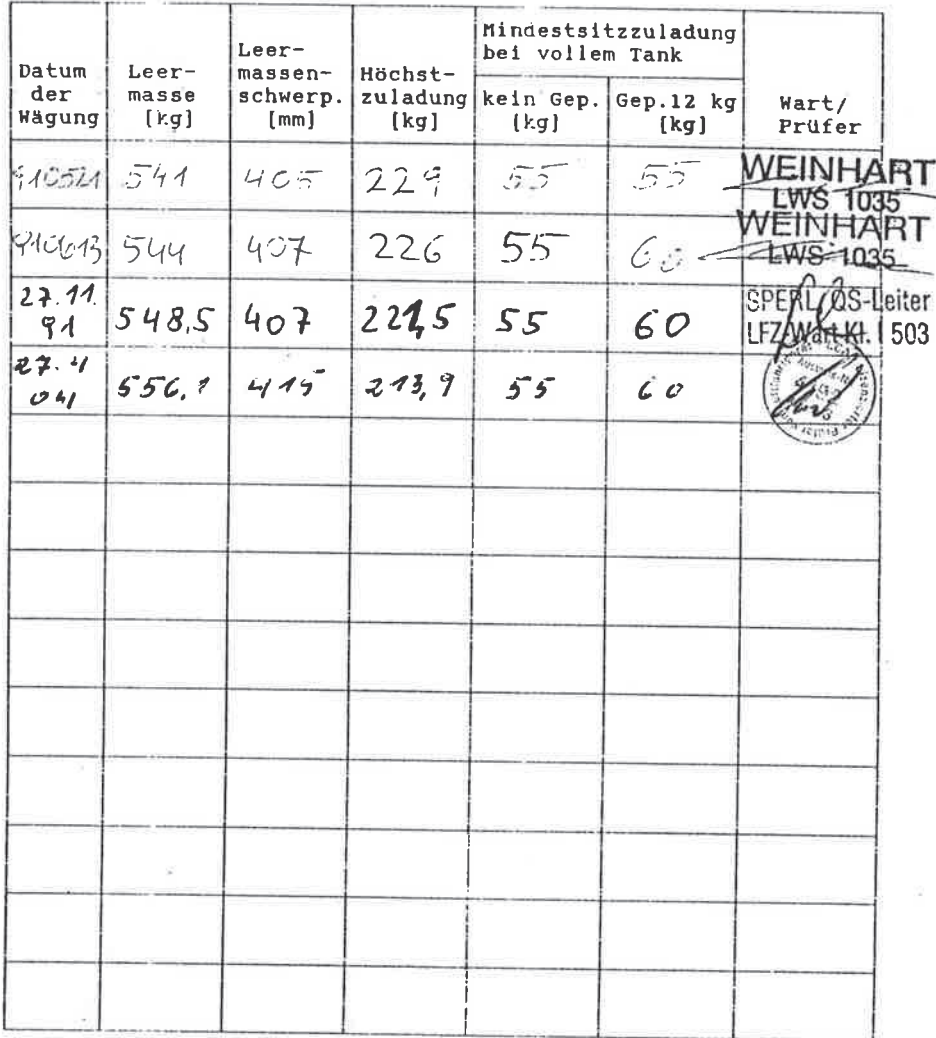 Datum der Wägung
Leer-masse [kg]
Leer-massen-schwerp. [mm]
Höchst-zuladung [kg]
Mindestsitzzuladung bei vollem Tank
kein Gep. [kg]
Gep.12 kg [kg]
Wart/ Prüfer
910521 541 405 229 55 55 WEINHART LWS 1035
910613 544 407 226 55 60 WEINHART LWS 1035
27.11. 91 548,5 407 221,5 55 60 SPERL QS-Leiter LFZ-Wart Kl. I 503
27.4 04 556,1 415 213,9 55 60